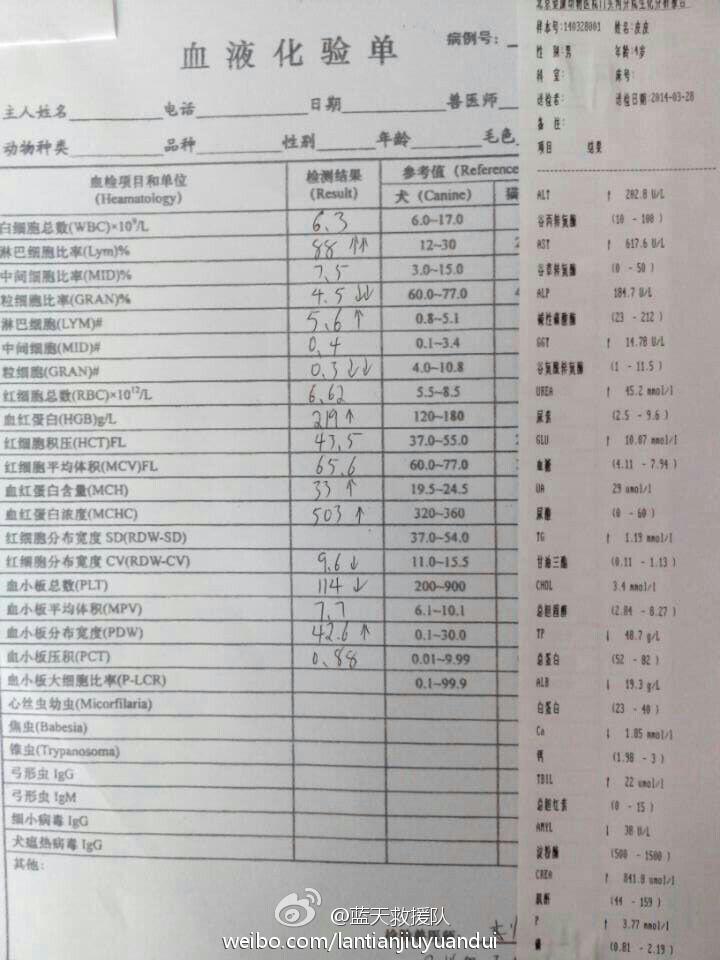 血液化验单
病例号:
主人姓名 电话 日期 兽医师
动物种类 品种 性别 年龄 毛色
血检项目和单位 (Heamatology) 检测结果 (Result) 参考值 (Reference
犬 (Canine) 猫
白细胞总数(WBC)×10⁹/L 6.3 6.0~17.0
淋巴细胞比率(Lym)% 88 ↑↑ 12~30
中间细胞比率(MID)% 7.5 3.0~15.0
粒细胞比率(GRAN)% 4.5 ↓↓ 60.0~77.0
淋巴细胞(LYM)# 5.6 ↑ 0.8~5.1
中间细胞(MID)# 0.4 0.1~3.4
粒细胞(GRAN)# 0.3 ↓↓ 4.0~10.8
红细胞总数(RBC)×10¹²/L 6.62 5.5~8.5
血红蛋白(HGB)g/L 219 ↑ 120~180
红细胞积压(HCT)FL 43.5 37.0~55.0
红细胞平均体积(MCV)FL 65.6 60.0~77.0
血红蛋白含量(MCH) 33 ↑ 19.5~24.5
血红蛋白浓度(MCHC) 503 ↑ 320~360
红细胞分布宽度 SD(RDW-SD) 37.0~54.0
红细胞分布宽度 CV(RDW-CV) 9.6 ↓ 11.0~15.5
血小板总数(PLT) 114 ↓ 200~900
血小板平均体积(MPV) 7.7 6.1~10.1
血小板分布宽度(PDW) 42.6 ↑ 0.1~30.0
血小板压积(PCT) 0.88 0.01~9.99
血小板大细胞比率(P-LCR) 0.1~99.9
心丝虫幼虫(Micorfilaria)
焦虫(Babesia)
锥虫(Trypanosoma)
弓形虫 IgG
弓形虫 IgM
细小病毒 IgG
犬瘟热病毒 IgG
其他:
样本号:140328001 姓名:皮皮
性 别:男 年龄:4岁
科 室: 床号:
送检者: 送检日期:2014-03-28
备 注:
项目 结果
ALT ↑ 202.8 U/L
谷丙转氨酶 (10 - 100 )
AST ↑ 617.6 U/L
谷草转氨酶 (0 - 50 )
ALP 184.7 U/L
碱性磷酸酶 (23 - 212 )
GGT ↑ 14.78 U/L
谷氨酰转氨酶 (1 - 11.5 )
UREA ↑ 45.2 mmol/l
尿素 (2.5 - 9.6 )
GLU ↑ 10.07 mmol/l
血糖 (4.11 - 7.94 )
UA 29 umol/l
尿酸 (0 - 60 )
TG ↑ 1.19 mmol/l
甘油三酯 (0.11 - 1.13 )
CHOL 3.4 mmol/l
总胆固醇 (2.84 - 8.27 )
TP ↓ 48.7 g/L
总蛋白 (52 - 82 )
ALB ↓ 19.3 g/L
白蛋白 (23 - 40 )
Ca ↓ 1.85 mmol/l
钙 (1.98 - 3 )
TBIL ↑ 22 umol/l
总胆红素 (0 - 15 )
AMYL ↓ 38 U/L
淀粉酶 (500 - 1500 )
CREA ↑ 841.8 umol/l
肌酐 (44 - 159 )
P ↑ 3.77 mmol/l
磷 (0.81 - 2.19 )
@蓝天救援队
weibo.com/lantianjiuyuandui